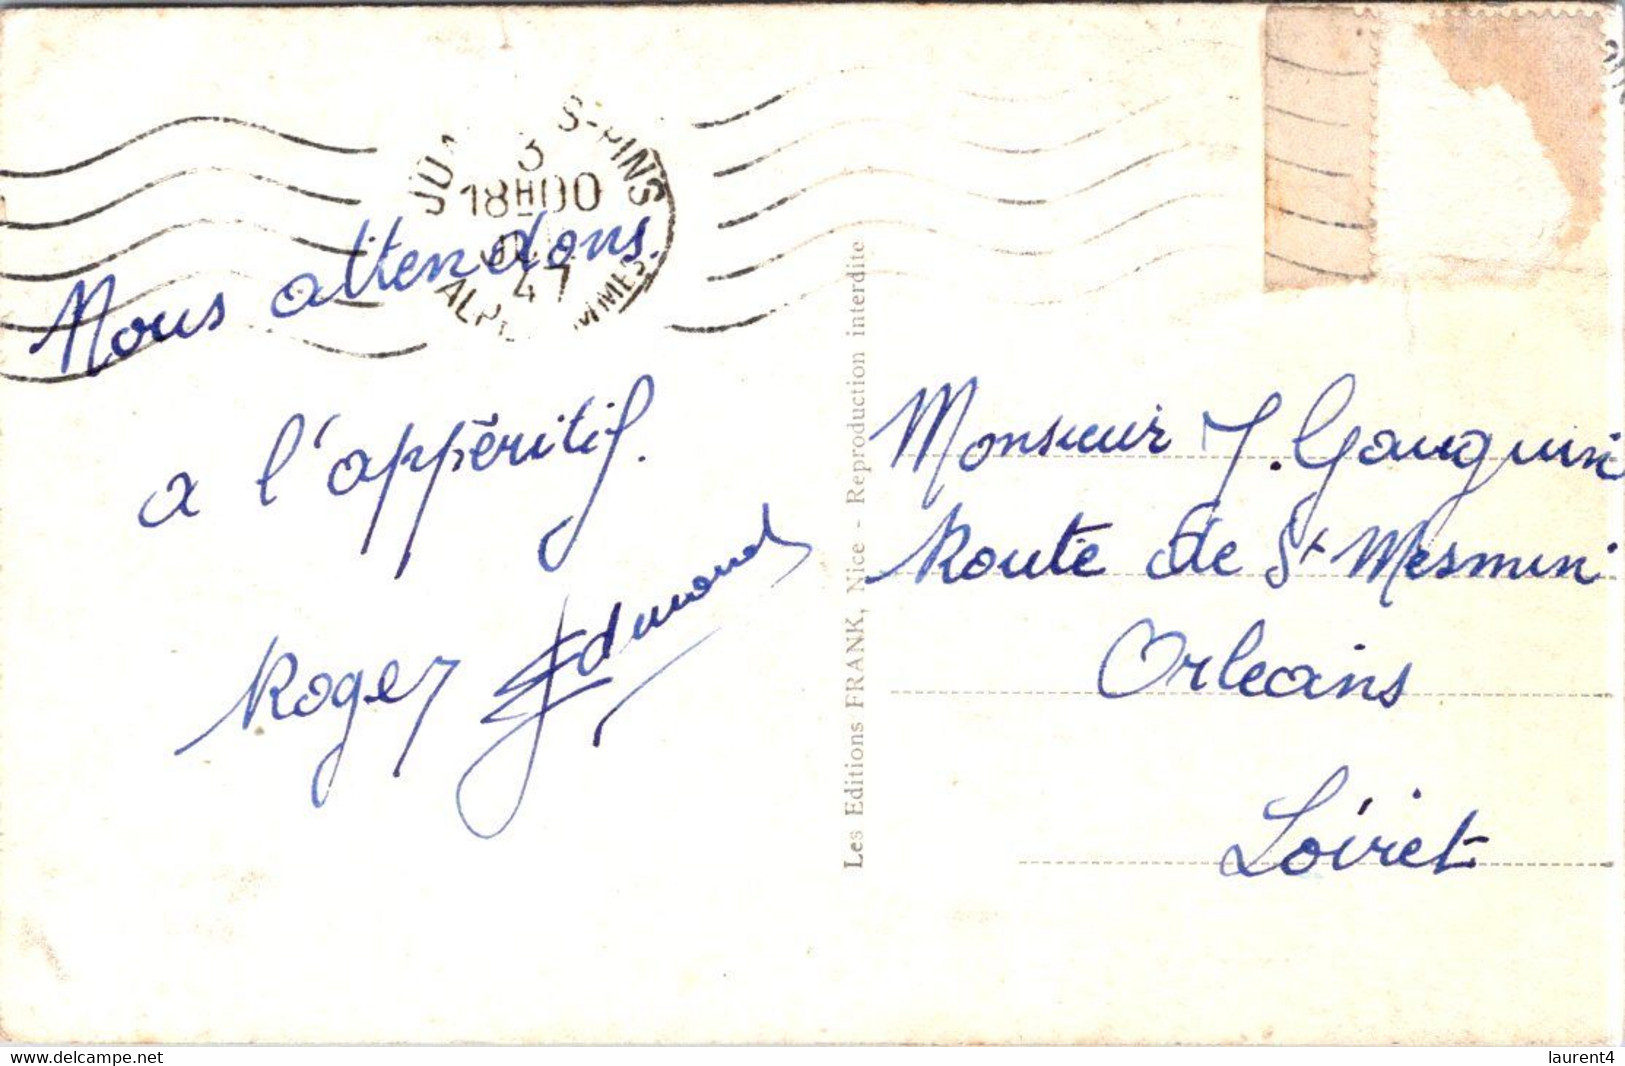 S-PINS
3
18H00
47
Nous attendons.
a l'appéritif.
Roger Edmond
Les Editions FRANK, Nice - Reproduction interdite
Monsieur J. Gauguin
Route de St Mesmin
Orleans
Loiret
www.delcampe.net
laurent4